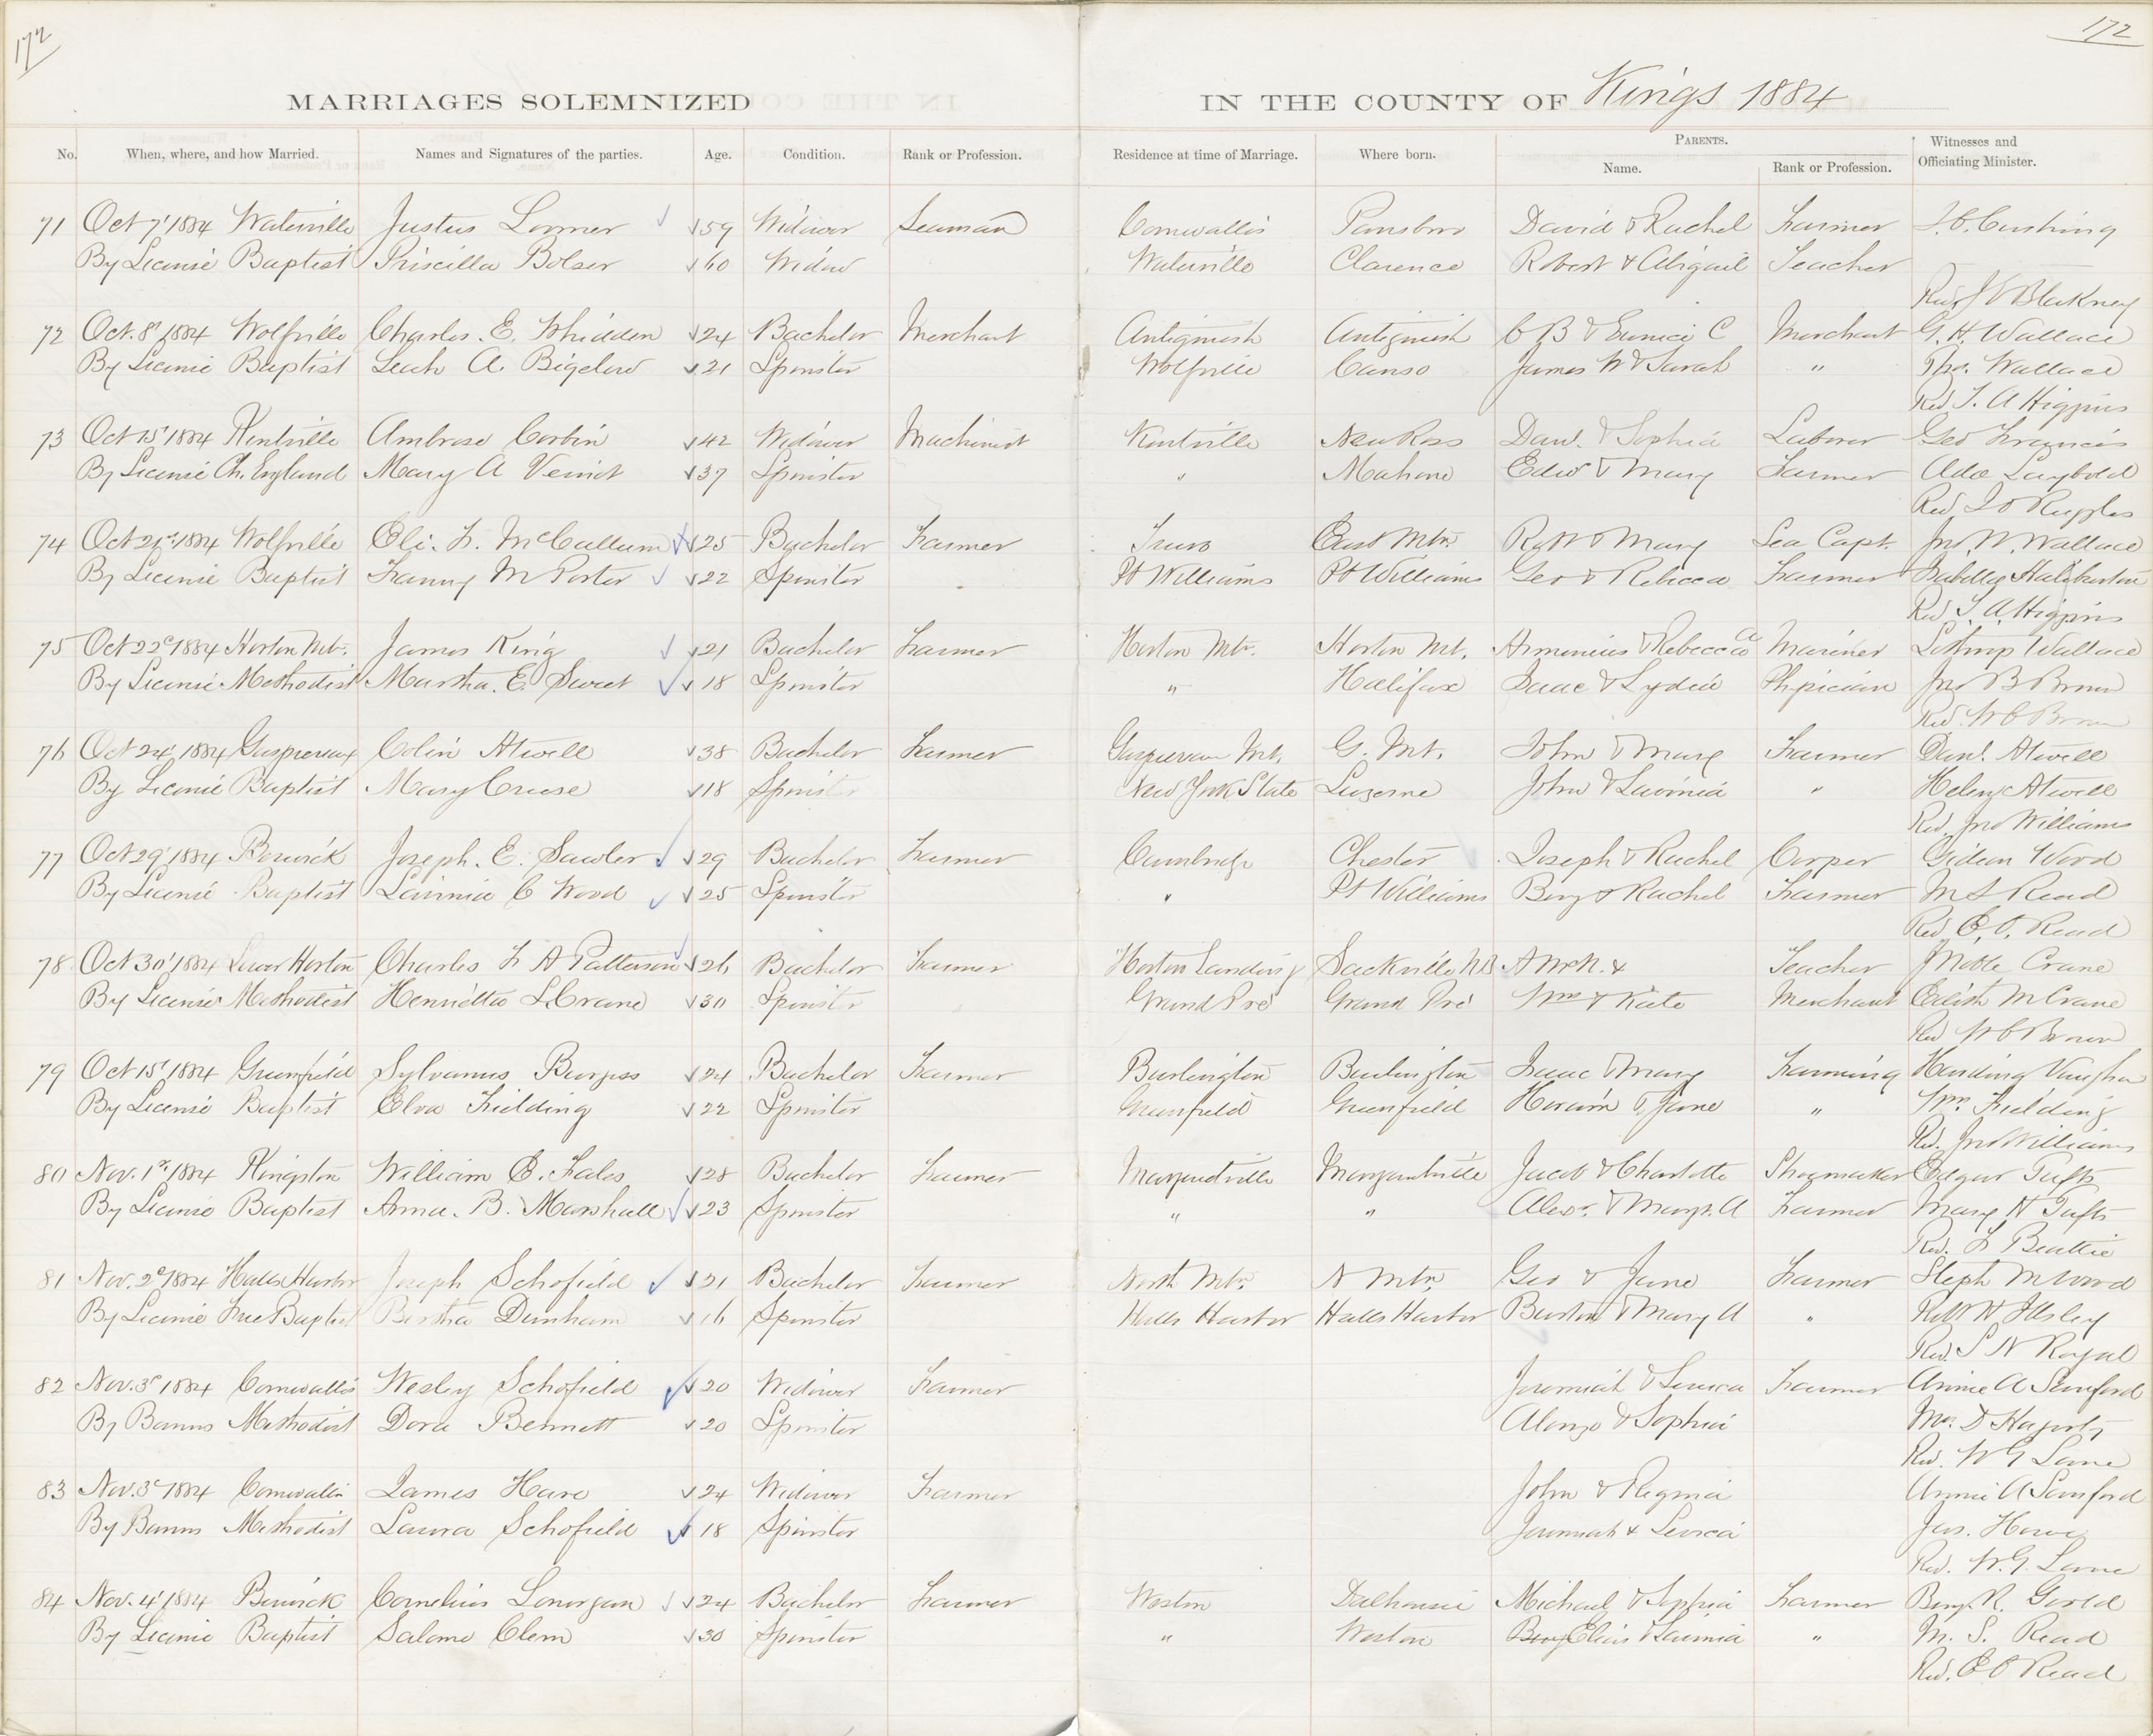 172 172
MARRIAGES SOLEMNIZED IN THE COUNTY OF Kings 1884
No. When, where, and how Married. Names and Signatures of the parties. Age. Condition. Rank or Profession. Residence at time of Marriage. Where born. PARENTS. Name. Rank or Profession. Witnesses and Officiating Minister.
71 Oct 7' 1884 Waterville Justus 59 Widower Seaman Cornwallis David & Rachel Farmer Cushing
By License Baptist Priscilla Bolser 60 Widow Waterville Clarence Robert & Abigail Teacher
Rev J Blakney
72 Oct. 8' 1884 Wolfville Charles. E. Whidden 24 Bachelor Merchant Antigonish Antigonish C B & Eunice C Merchant G. H. Wallace
By License Baptist Leah A. Bigelow 21 Spinster Wolfville Canso James W & Sarah " Wallace
Rev T. A Higgins
73 Oct 15' 1884 Kentville Ambrose Corbin 42 Widower Machinist Kentville New Ross Danl. & Sophia Laborer Geo Francis
By License Ch. England Mary A Veinot 37 Spinster " Mahone Edwd & Mary Farmer Ada
Rev J O Ruggles
74 Oct 21st 1884 Wolfville Eli. F. McCallum 25 Bachelor Farmer Truro East Mtn. Robt & Mary Sea Capt. Jno. W. Wallace
By License Baptist Fanny M Porter 22 Spinster Pt Williams Pt Williams Geo & Rebecca Farmer Isabella Haliburton
Rev T. A. Higgins
75 Oct 22d 1884 Horton Mt. James King 21 Bachelor Farmer Horton Mtn. Horton Mt. Armenius & Rebecca Mariner Lothrop Wallace
By License Methodist Martha. E. Sweet 18 Spinster " Halifax Isaac & Lydia Physician Jno B Brown
Rev. W C Brown
76 Oct 24' 1884 Gaspereau Colin Atwell 38 Bachelor Farmer Gaspereau Mt. G. Mt. John & Mary Farmer Danl. Atwell
By License Baptist Mary Cruse 18 Spinster New York State Luzerne John & Lavinia " Helen Atwell
Rev. Jno Williams
77 Oct 29' 1884 Berwick Joseph. E. Sawler 29 Bachelor Farmer Cambridge Chester Joseph & Rachel Cooper Gideon Wood
By License Baptist Lavinia C Wood 25 Spinster " Pt Williams Benj & Rachel Farmer M S Read
Rev E. O. Read
78 Oct 30' 1884 Lower Horton Charles F A Patterson 26 Bachelor Farmer Horton Landing Sackville N B A McN. & Teacher J Noble Crane
By License Methodist Henrietta L Crane 30 Spinster Grand Pré Grand Pré Wm & Kate Merchant Edith M Crane
Rev W C Brown
79 Oct 15' 1884 Greenfield Sylvanus Burgess 24 Bachelor Farmer Burlington Burlington Isaac & Mary Farming Harding Vaughn
By License Baptist Elva Fielding 22 Spinster Greenfield Greenfield Hiram & Jane " Wm. Fielding
Rev. Jno Williams
80 Nov. 1st 1884 Kingston William E. Fales 28 Bachelor Farmer Margaretville Margaretville Jacob & Charlotte Shoemaker Edgar Tufts
By License Baptist Anna. B. Marshall 23 Spinster " " Alexr. & Mary. A Farmer Mary H Tufts
Rev. F Beattie
81 Nov. 2d 1884 Halls Harbor Joseph Schofield 21 Bachelor Farmer North Mtn. N Mtn. Geo & Jane Farmer Steph M Wood
By License Free Baptist Bertha Dunham 16 Spinster Halls Harbor Halls Harbor Burton & Mary A " Robt H Illsley
Rev. S N Royal
82 Nov. 3d 1884 Cornwallis Wesley Schofield 20 Widower Farmer Jeremiah & Levica Farmer Annie A Sanford
By Banns Methodist Dora Bennett 20 Spinster Alonzo & Sophia Mrs. D
Rev. W G Lane
83 Nov. 3d 1884 Cornwallis James Hare 24 Widower Farmer John & Regina Annie A Sanford
By Banns Methodist Laura Schofield 18 Spinster Jeremiah & Levica Jas.
Rev. W. G. Lane
84 Nov. 4' 1884 Berwick Cornelius Lonergan 24 Bachelor Farmer Weston Dalhousie Michael & Sophia Farmer Benj. R. Gould
By License Baptist Salome Clem 30 Spinster " Weston Benj Elias & Lavinia " M. S. Read
Rev. E O Read